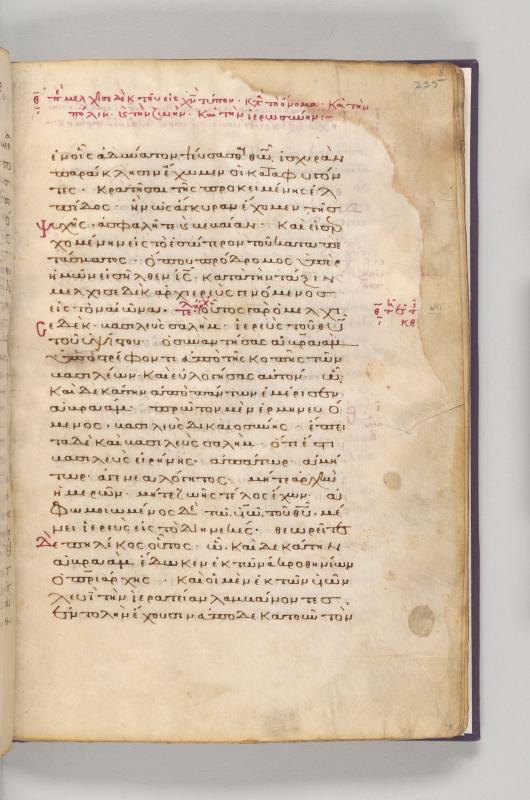 θ πε μελχισεδὲκ τοῦ εἰς χν τύπου· κτ τὸ ὄνομα· καὶ τὴν
πόλιν· ϗ τὴν ζωὴν· καὶ τὴν ἱερωσύνην:
235
ἐν οἷς ἀδύνατον ψεύσασθαι θν, ἰσχυρὰν
παράκλησιν ἔχωμεν οἱ καταφυγόν
τες· κρατῆσαι τῆς προκειμένης ἐλ
πίδος· ἣν ὡς ἄγκυραν ἔχομεν τῆς
ψυχῆς· ἀσφαλῆ τε ϗ βεβαίαν· καὶ εἰσερ
χομένην εἰς τὸ ἐσώτερον τοῦ καταπε
τάσματος· ὅπου πρόδρομος ὑπὲρ
ἡμῶν εἰσῆλθεν ις· κατὰ τὴν τάξιν
μελχισεδὲκ ἀρχιερεὺς γενόμενος
εἰς τὸν αἰῶνα· οὗτος γὰρ ὁ μελχι
σεδὲκ· βασιλεὺς σαλήμ· ἱερεὺς τοῦ θυ
τοῦ ὑψίστου· ὁ συναντήσας ἀβραὰμ
ὑποστρέφοντι ἀπὸ τῆς κοπῆς τῶν
βασιλέων· καὶ εὐλογήσας αὐτόν· ᾧ
καὶ δεκάτην ἀπὸ πάντων ἐμέρισεν
ἀβραάμ· πρῶτον μὲν ἑρμηνευό
μενος· βασιλεὺς δικαιοσύνης· ἔπει
τα δὲ καὶ βασιλεὺς σαλήμ· ὅ ἐστι
βασιλεὺς εἰρήνης· ἀπάτωρ· ἀμή
τωρ· ἀγενεαλόγητος· μήτε ἀρχὴν
ἡμερῶν· μήτε ζωῆς τέλος ἔχων· ἀ
φωμοιωμένος δὲ τῷ υἱῷ τοῦ θυ· μέ
νει ἱερεὺς εἰς τὸ διηνεκές· θεωρεῖτε
δὲ πηλίκος οὗτος· ᾧ καὶ δεκάτην
ἀβραὰμ ἔδωκεν ἐκ τῶν ἀκροθινίων
ὁ πριάρχης· καὶ οἱ μὲν ἐκ τῶν υἱῶν
λευῒ τὴν ἱερατείαν λαμβάνοντες·
ἐντολὴν ἔχουσιν ἀποδεκατοῦν τὸν
VII